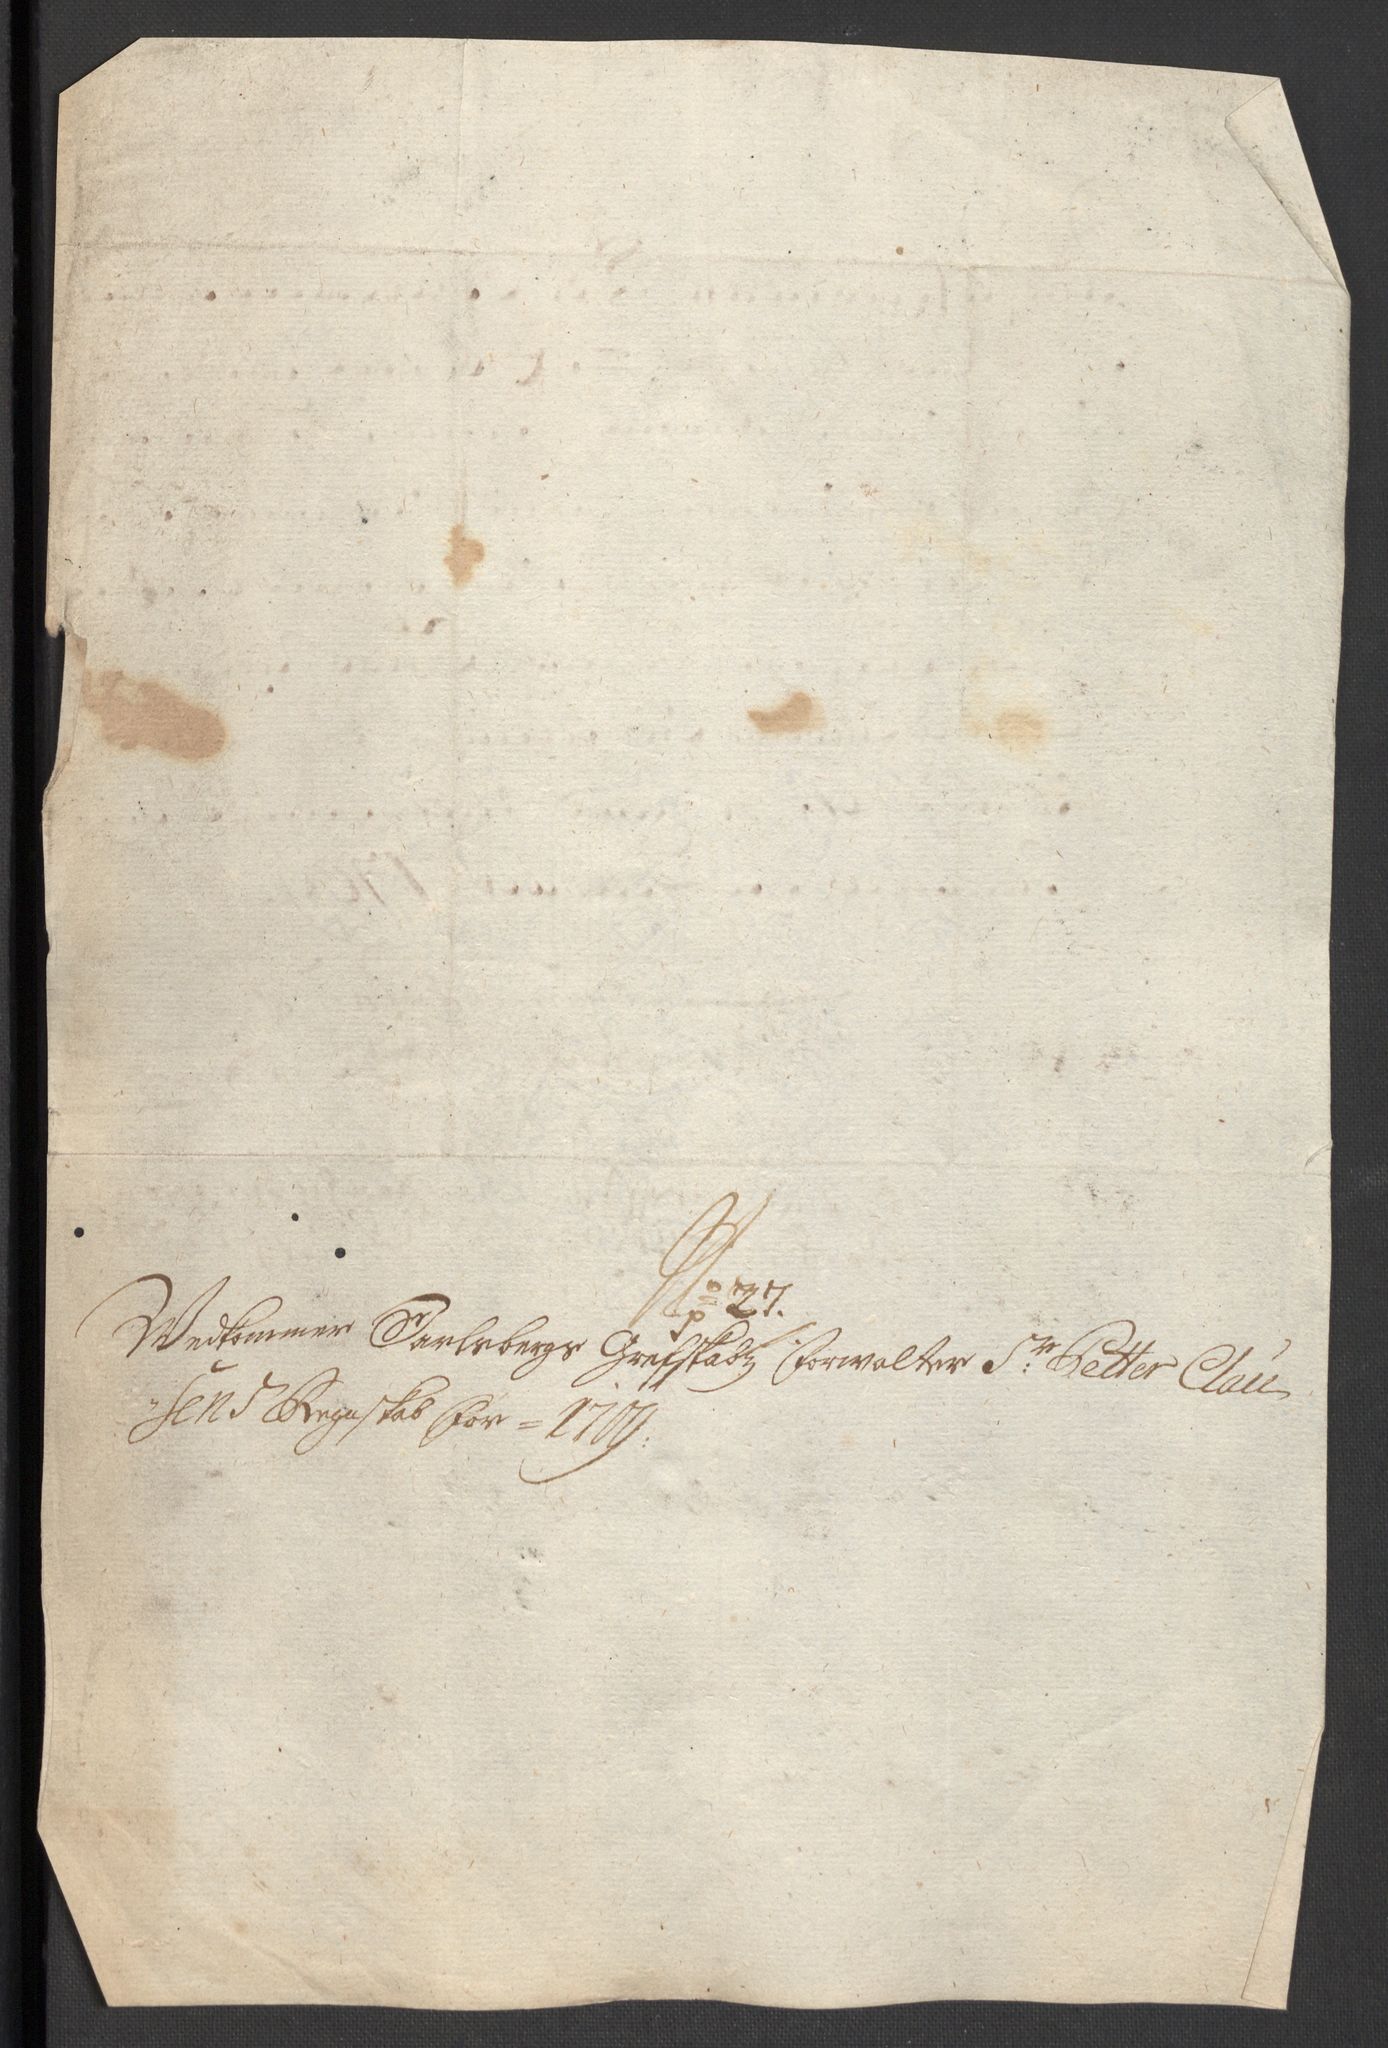 No 27.
Wedkommer Jarlsbergs Grefskabz forwalter Sr. Petter Clau
"sens Regnskab for = 1709: